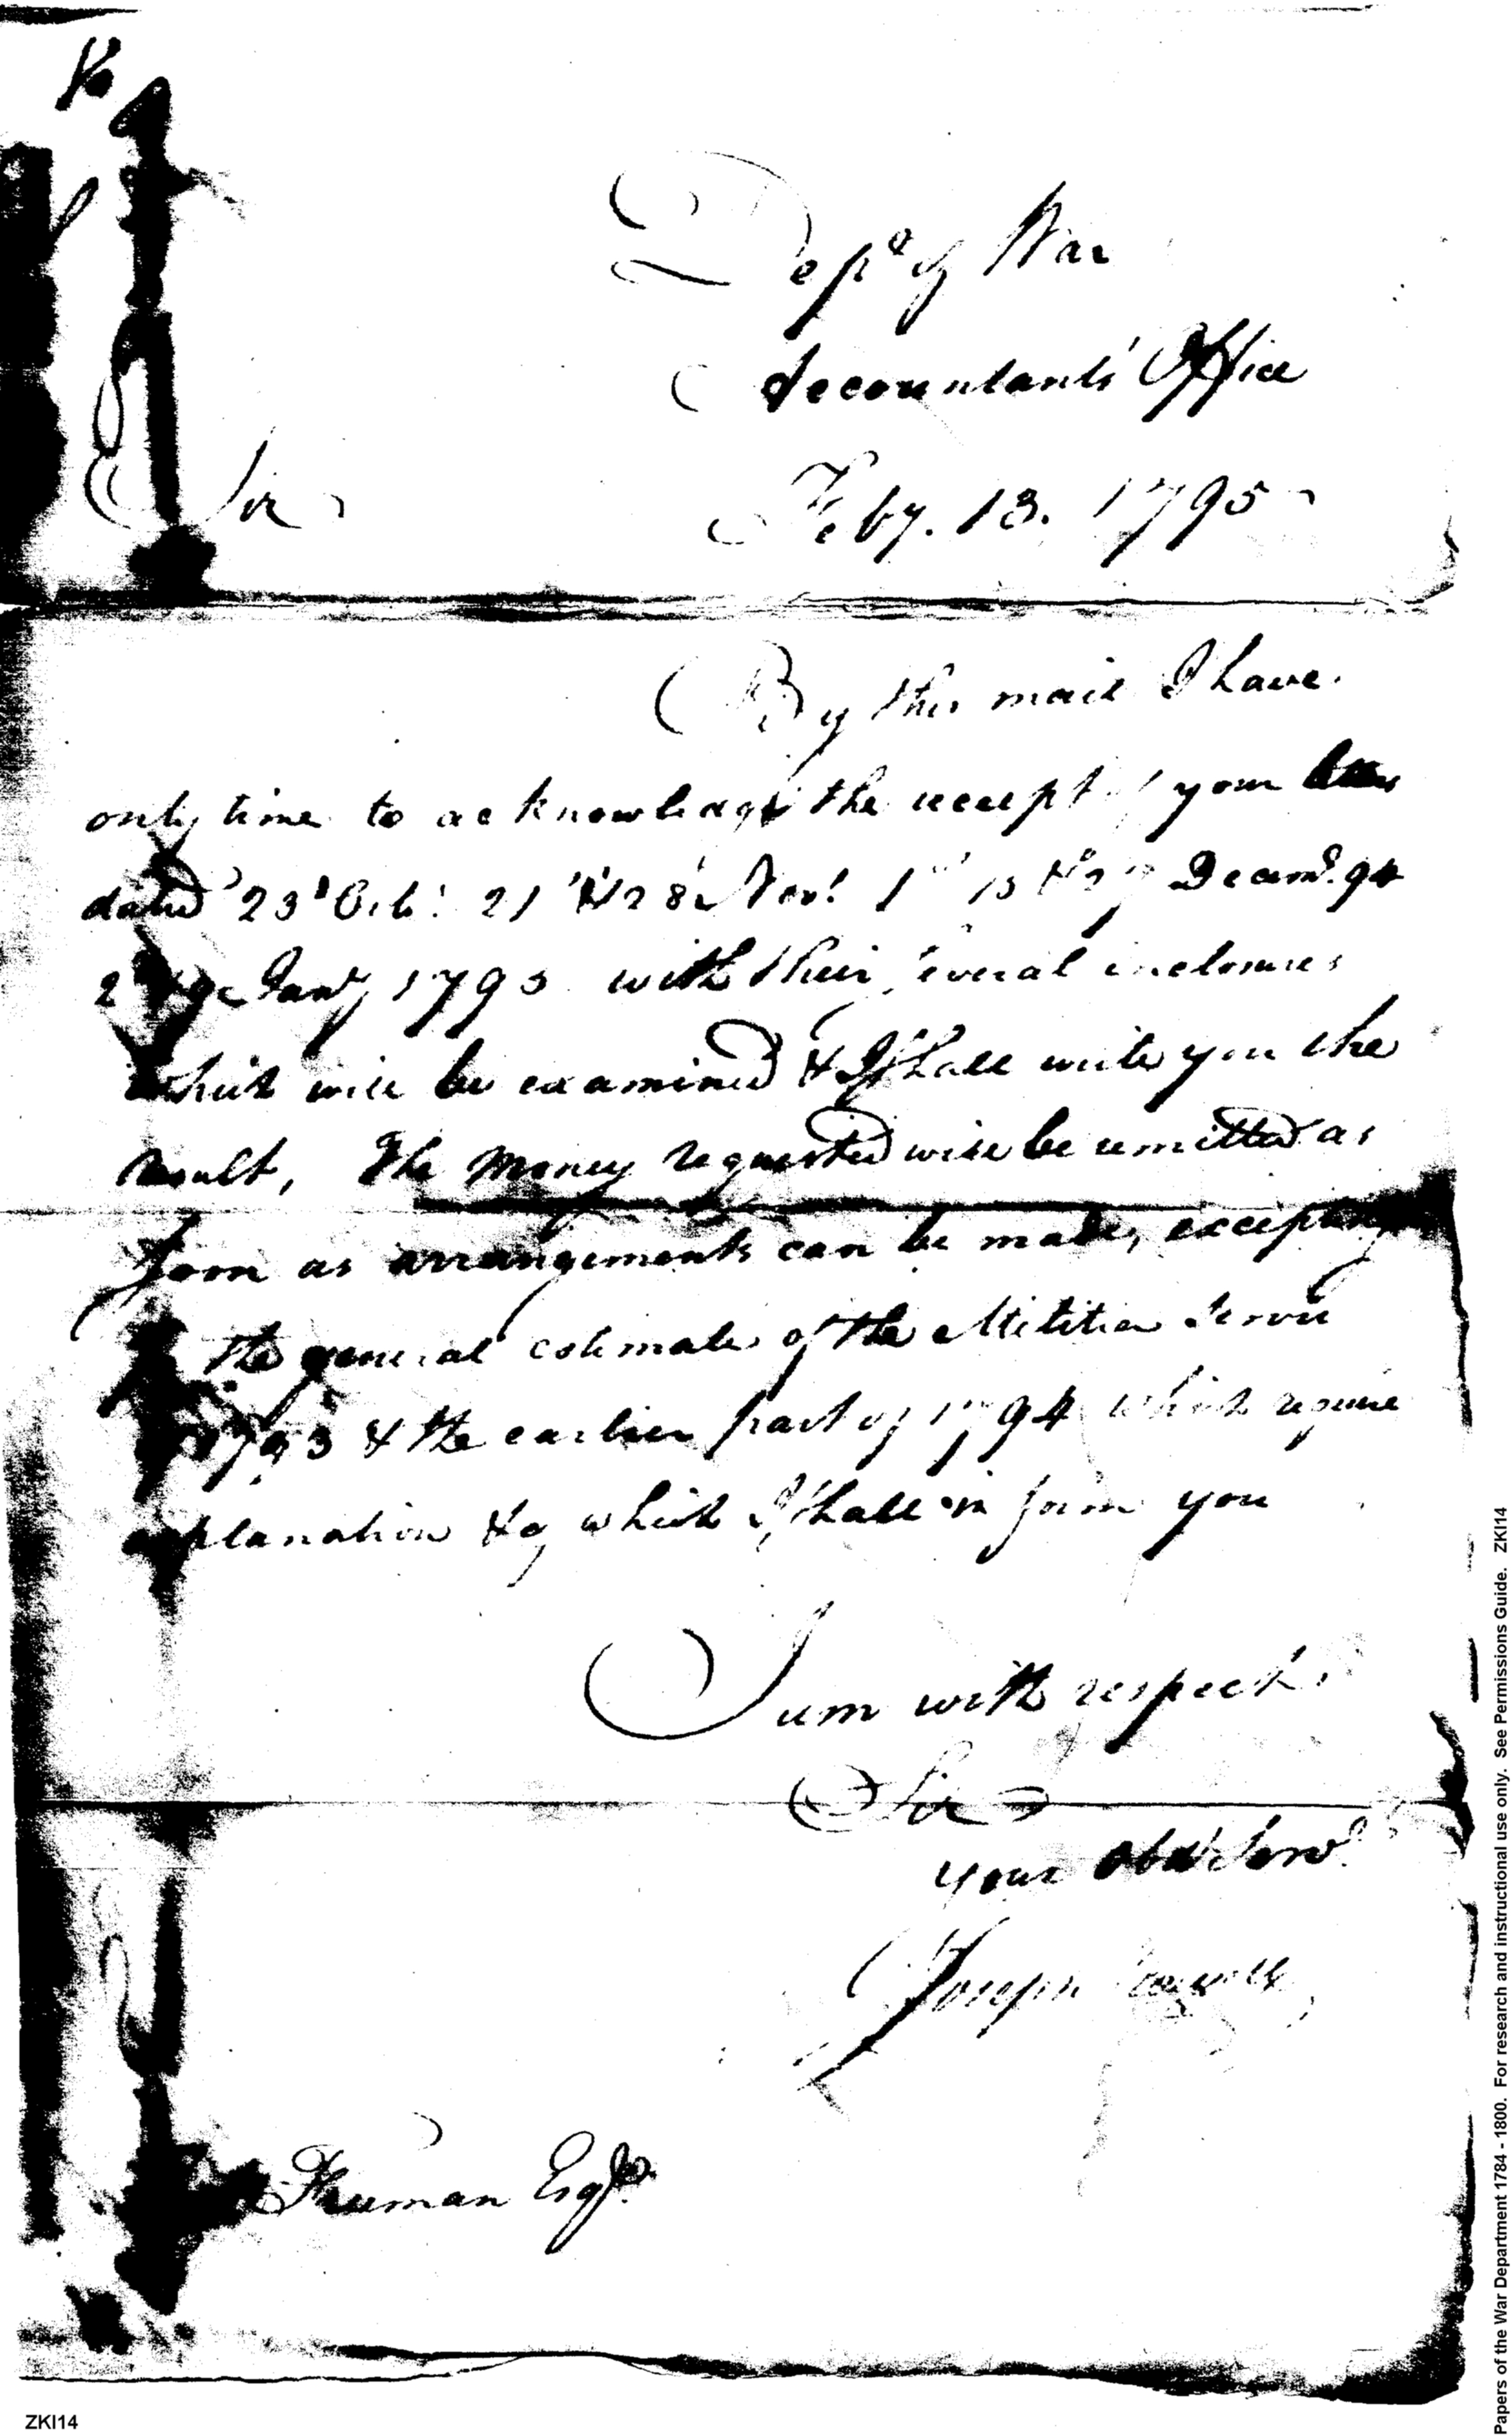 Dept of War
Accountants' Office
Feby. 13. 1795
Sir
By this mail I have
only time to acknowledge the receipt of your letters
dated 23d Octr. 21 & 28 Novr. 1st 13 & Decemr. 94
2 Jany 1795 with their several inclosures
which will be examined & I shall write you the
result, The money requested will be remitted as
soon as arrangements can be made, excepting
the general estimate of the Militia Service
1793 & the earlier part of 1794 which require
explanation & of which I shall inform you
I am with respect
Sir
your Obdt Servt
Joseph Howell
Freeman Esqr.
ZKI14
Papers of the War Department 1784 - 1800. For research and instructional use only. See Permissions Guide. ZKI14